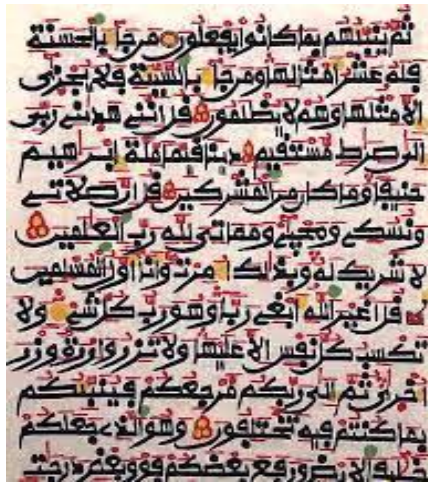 ثم ينبئهم بما كانوا يفعلون من جاء بالحسنة
فله عشر امثالها ومن جاء بالسيئة فلا يجزى
الا مثلها وهم لا يظلمون قل انني هدىني ربي
الى صراط مستقيم دينا قيما ملة ابراهيم
حنيفا وما كان من المشركين قل ان صلاتي
ونسكي ومحياي ومماتي لله رب العلمين
لا شريك له وبذلك امرت وانا اول المسلمين
قل اغير الله ابغي ربا وهو رب كل شيء ولا
تكسب كل نفس الا عليها ولا تزر وازرة وزر
اخرى ثم الى ربكم مرجعكم فينبئكم
بما كنتم فيه تختلفون وهو الذي جعلكم
خلئف الارض ورفع بعضكم فوق بعض درجت